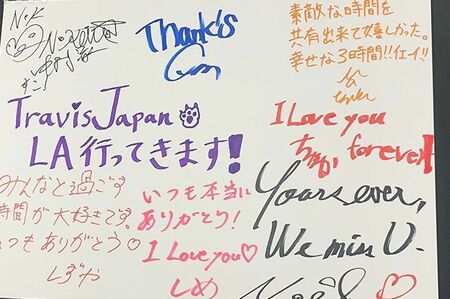 N・K
Thanks
素敵な時間を
共有出来て嬉しかった。
幸せな3時間!!イエーイ!!
Travis Japan
LA 行ってきます!
I Love you
forever!
みんなと過ごす
時間が大好きです。
いつもありがとう♡
しずや
いつも本当に
ありがとう!
I Love you♡
しめ
Yours ever,
We miss U.
Noel